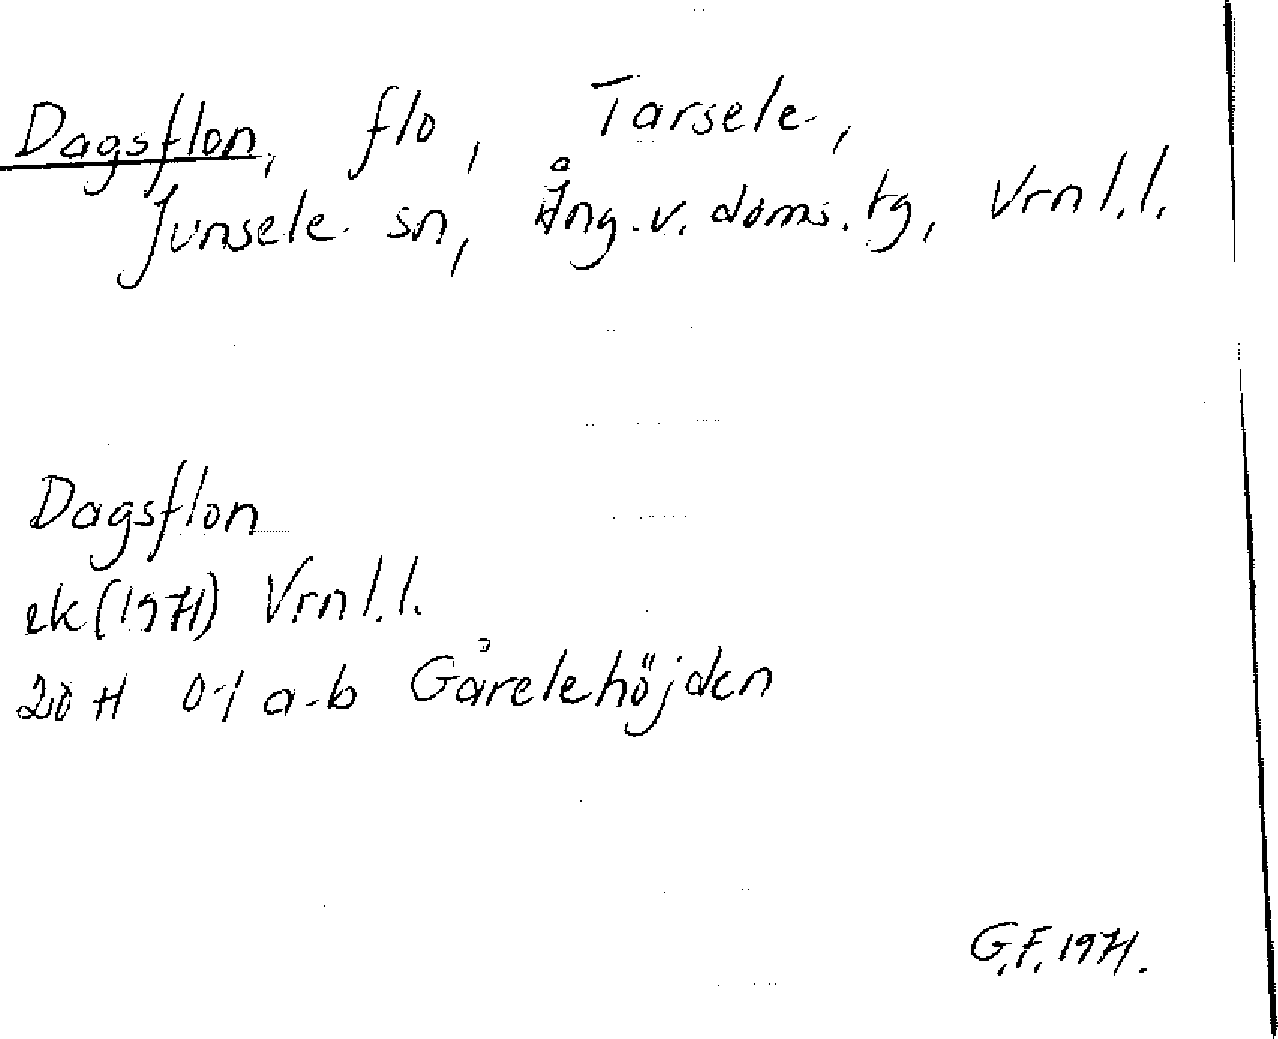 Dagsflon, flo, Tarsele,
Junsele sn, Ång.v.doms.tg, Vrnl.l.
Dagsflon
ek(1971) Vrnl.l.
20 H 0-1 a-b Gårelehöjden
G.F. 1971.